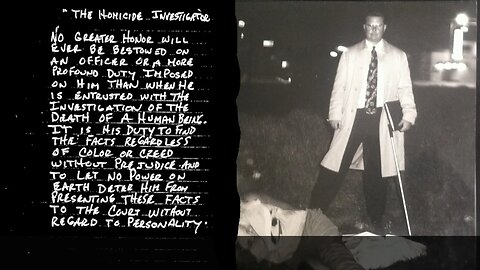 "THE HOMICIDE INVESTIGATOR
NO GREATER HONOR WILL
EVER BE BESTOWED ON
AN OFFICER OR A MORE
PROFOUND DUTY IMPOSED
ON HIM THAN WHEN HE
IS ENTRUSTED WITH THE
INVESTIGATION OF THE
DEATH OF A HUMAN BEING.
IT IS HIS DUTY TO FIND
THE FACTS REGARDLESS
OF COLOR OR CREED
WITHOUT PREJUDICE AND
TO LET NO POWER ON
EARTH DETER HIM FROM
PRESENTING THESE FACTS
TO THE COURT WITHOUT
REGARD TO PERSONALITY.